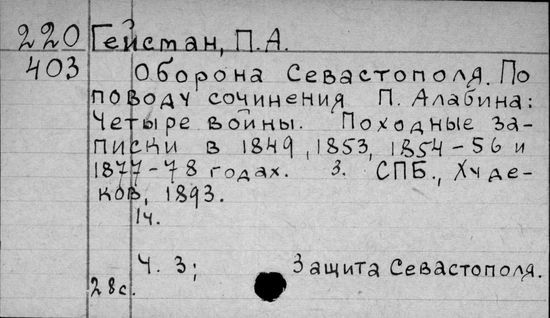 220 Гейсман, П.А.
403 Оборона Севастополя. По
поводу сочинения П. Алабина:
Четыре войны. Походные за-
писки в 1849, 1853, 1854-56 и
1877-78 годах. 3. СПБ., Худе-
ков, 1893.
14.
Ч. 3; Защита Севастополя.
28с.